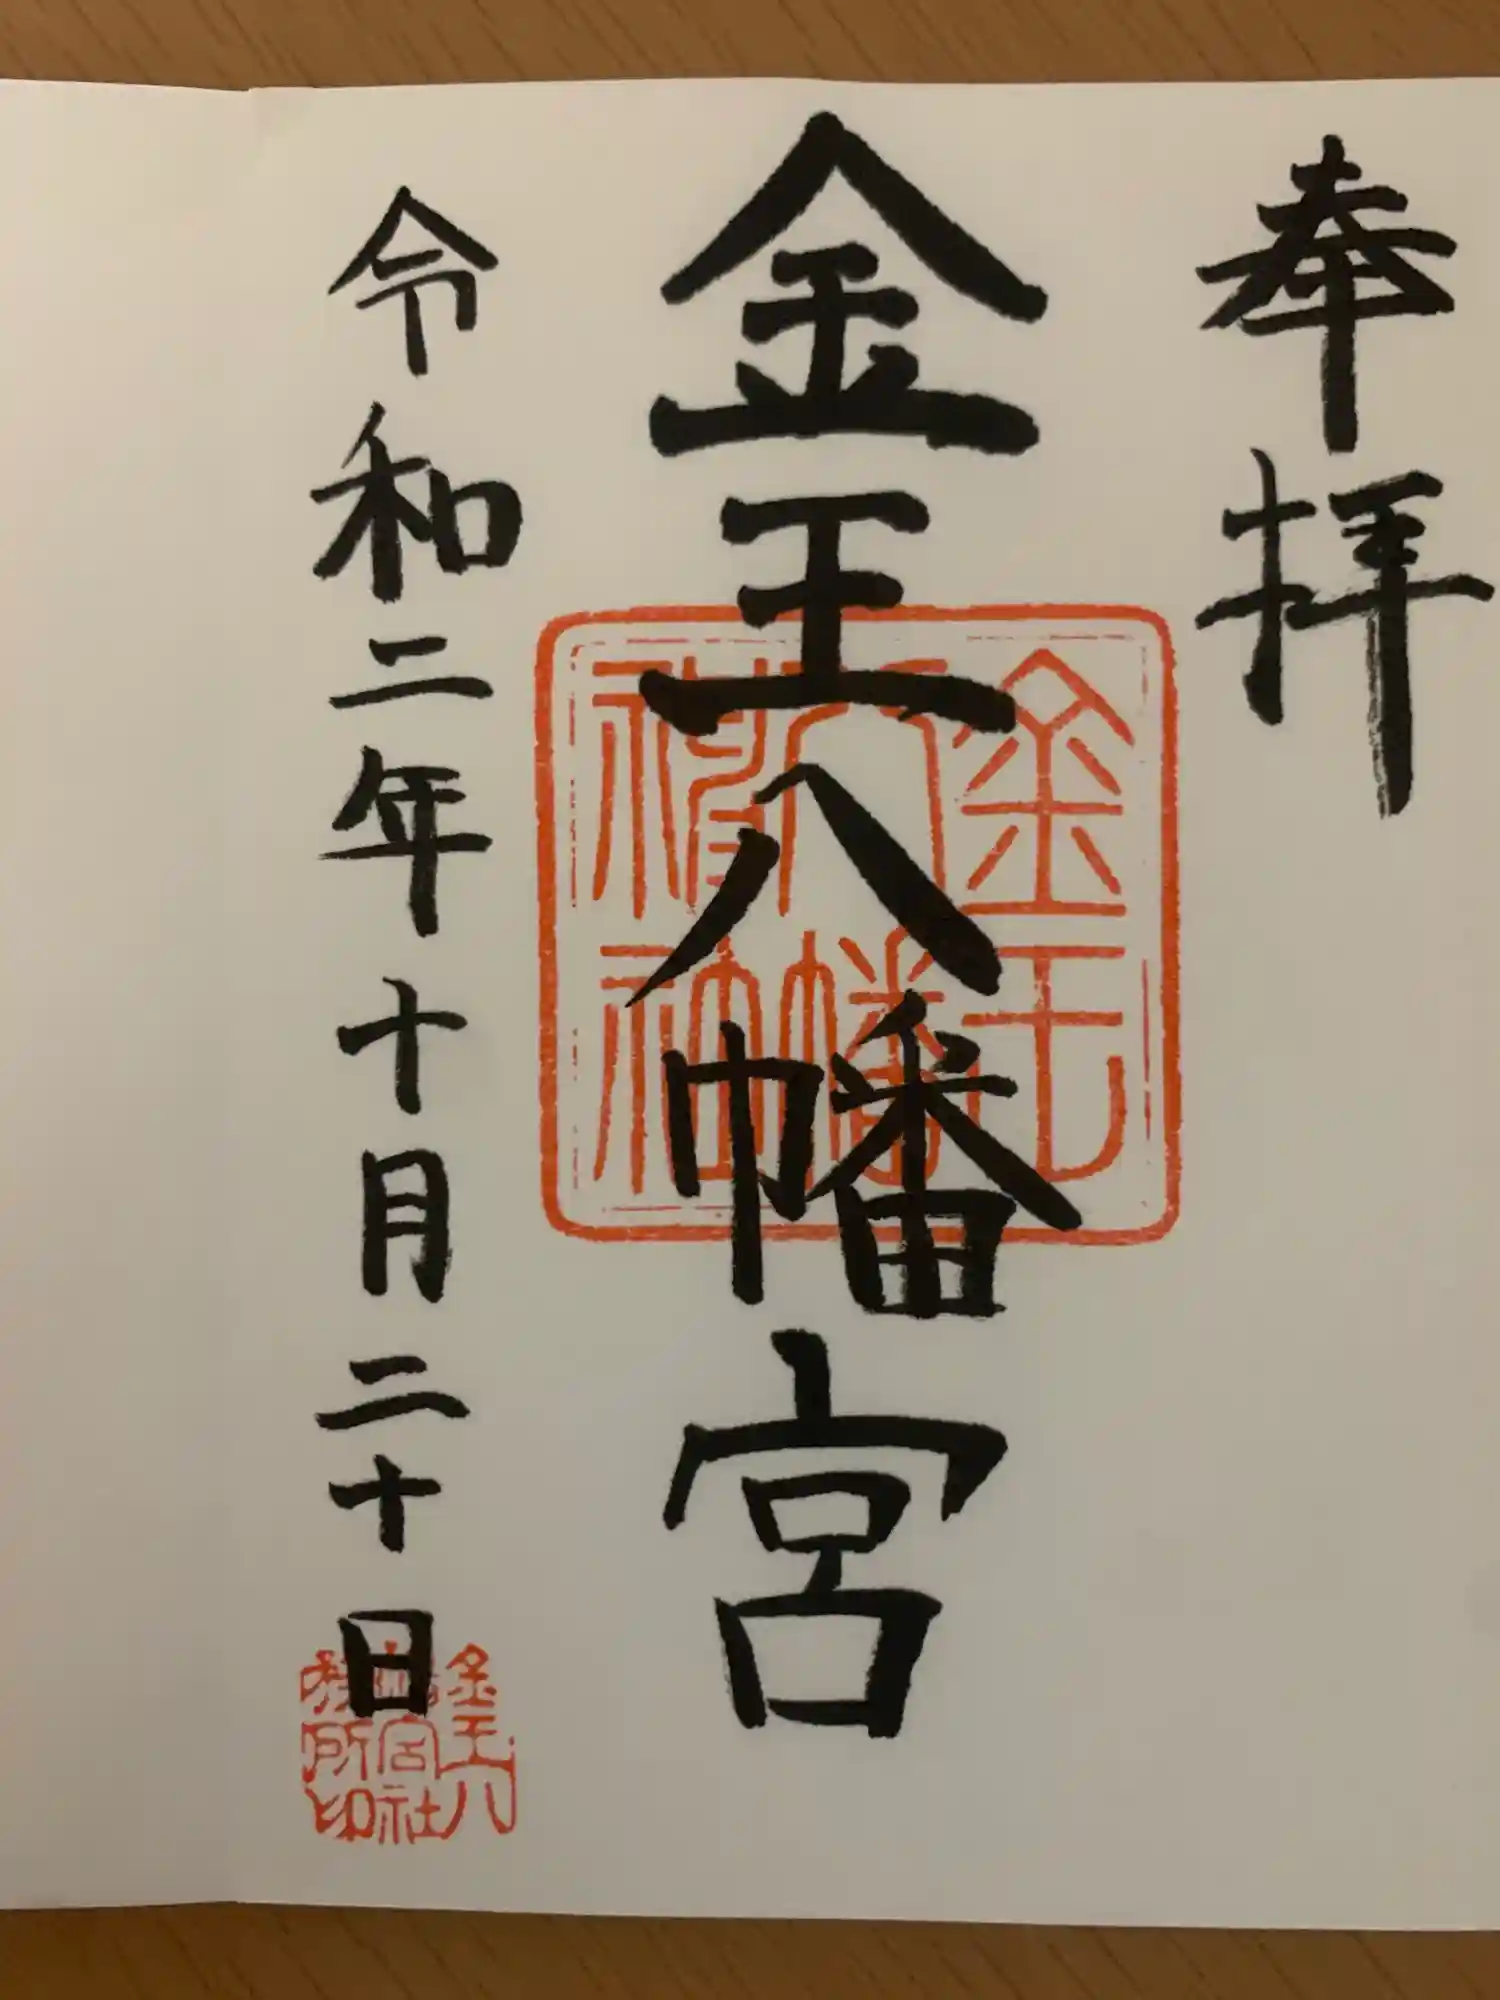 奉拝
金王八幡宮
令和二年十月二十日
金王
八幡
神社
金王八
幡宮社
務所印